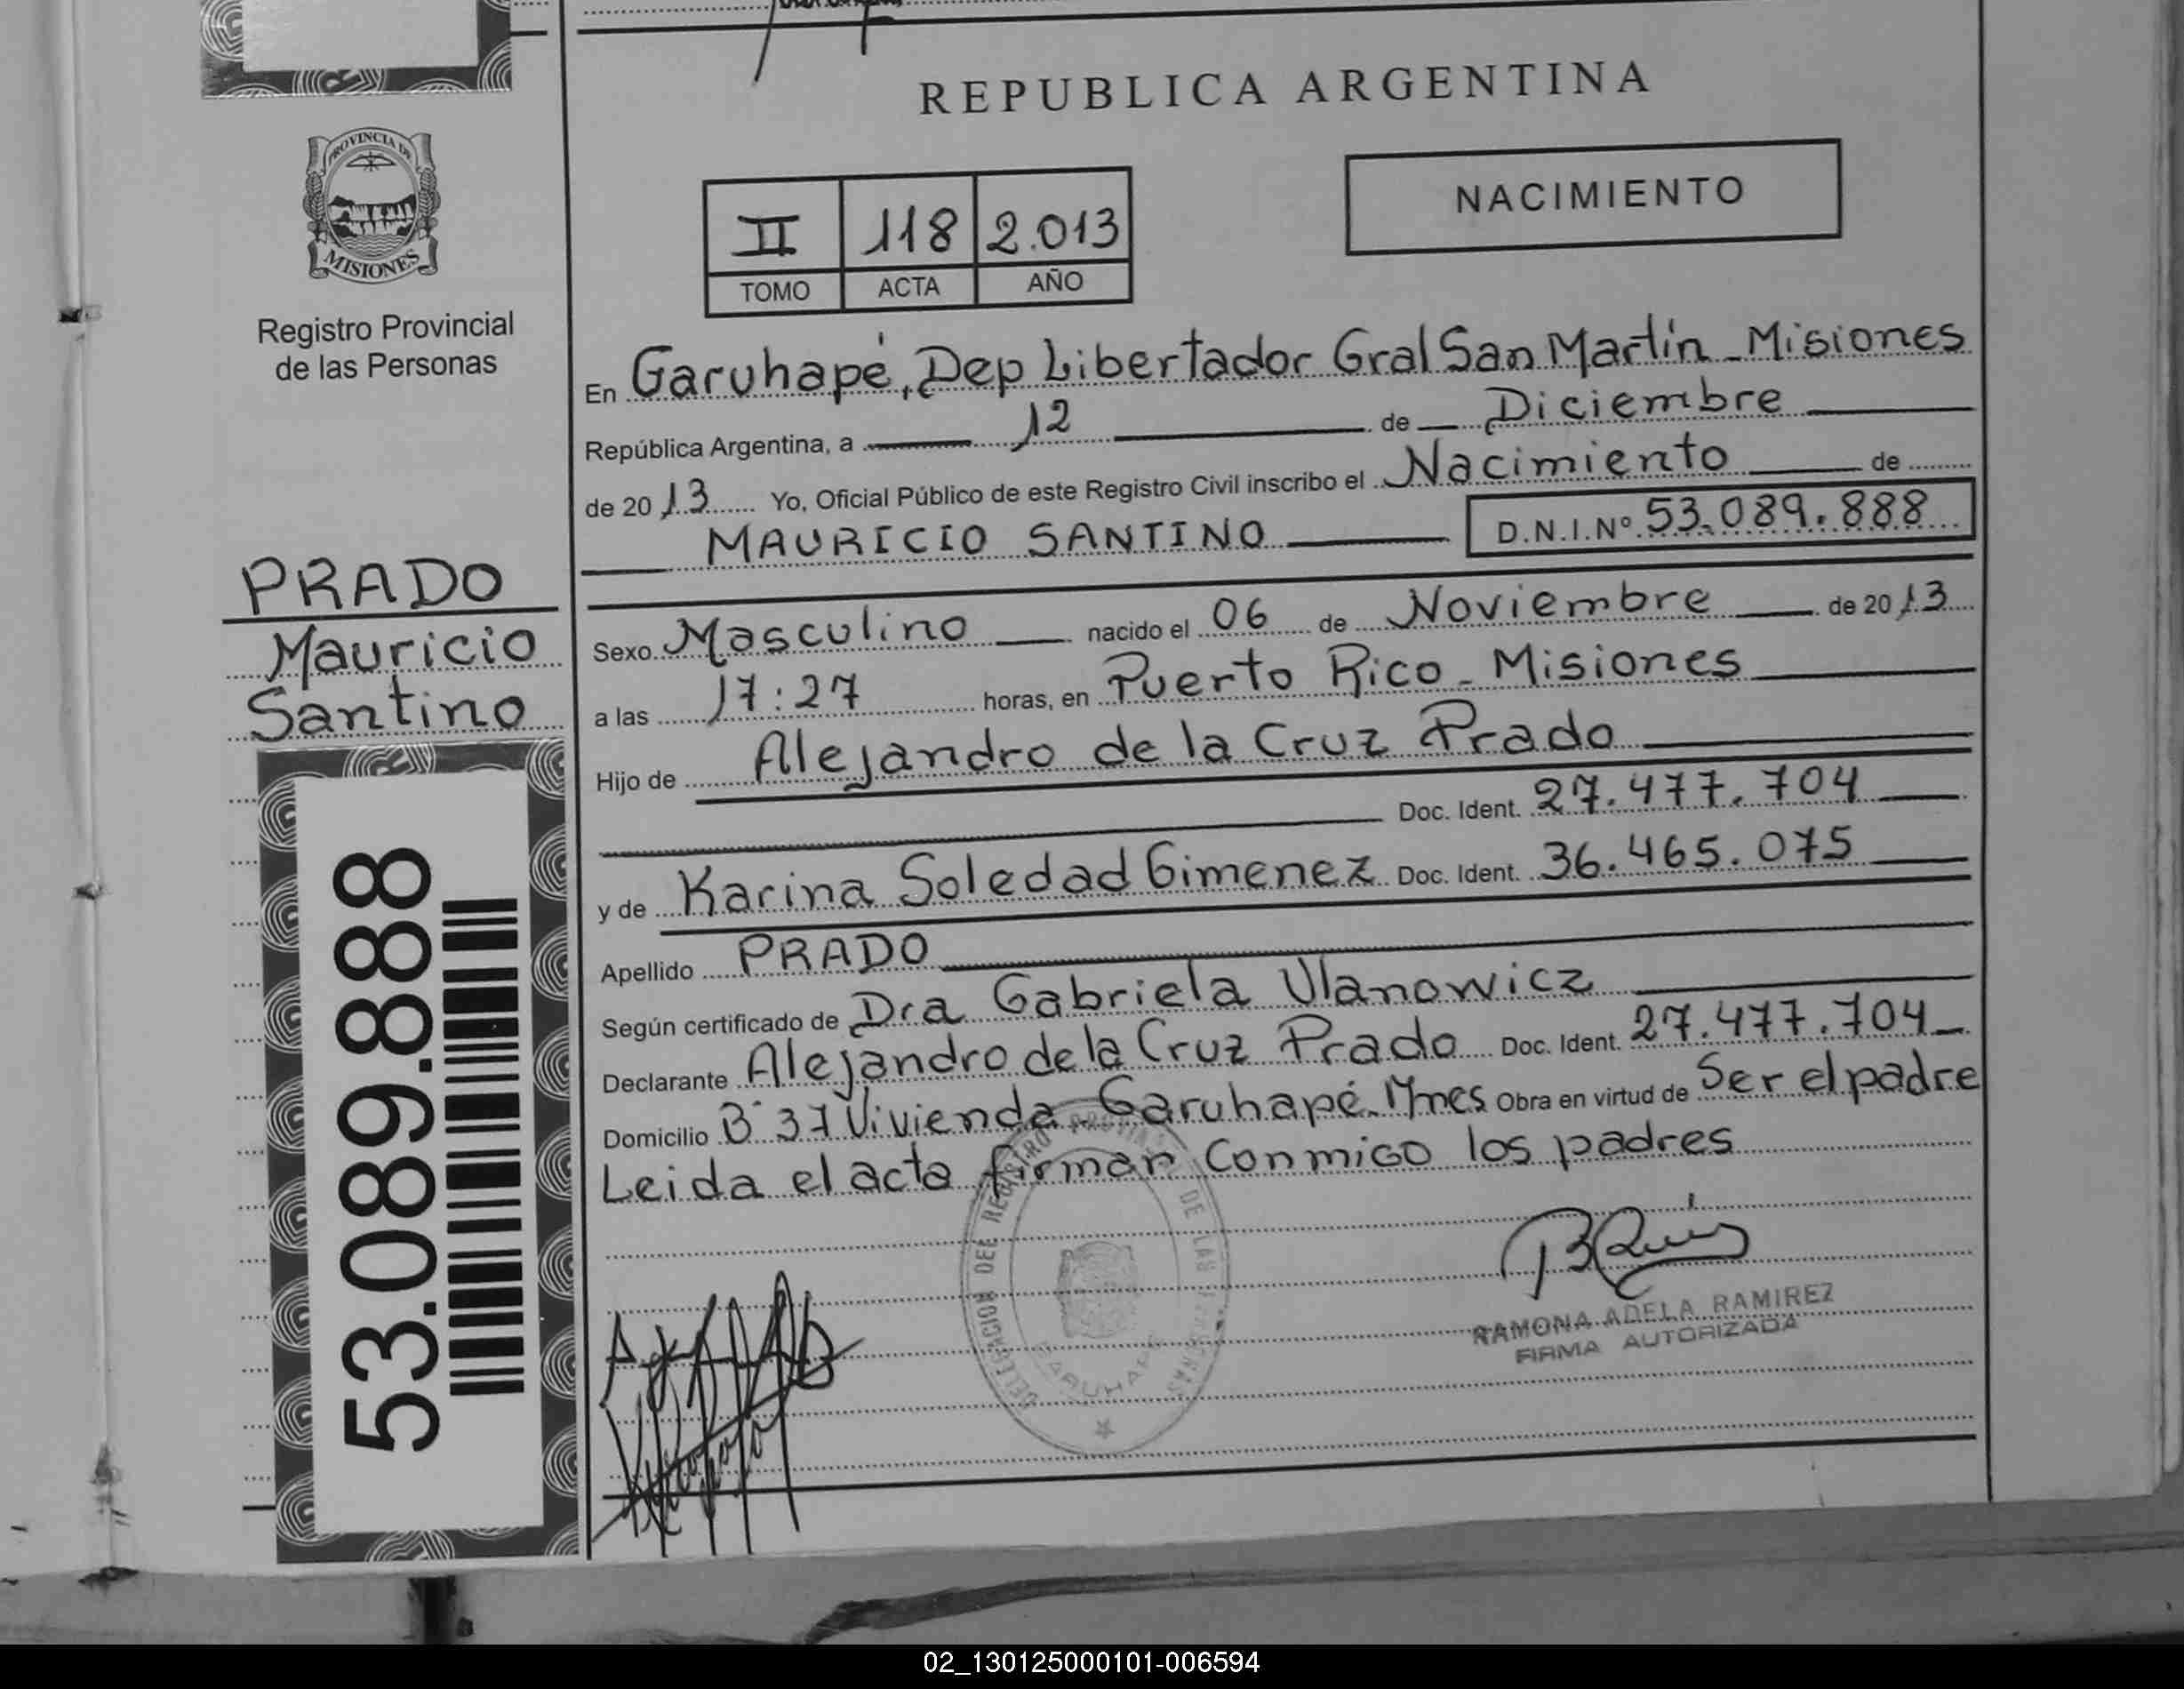 REPUBLICA ARGENTINA
PROVINCIA DE
MISIONES
Registro Provincial
de las Personas
NACIMIENTO
II 118 2.013
TOMO ACTA AÑO
En Garuhapé, Dep Libertador Gral San Martín - Misiones
República Argentina, a 12 de Diciembre
de 20 13 Yo, Oficial Público de este Registro Civil inscribo el Nacimiento de
MAURICIO SANTINO D.N.I.Nº 53.089.888
PRADO
Mauricio
Santino
53.089.888
Sexo Masculino nacido el 06 de Noviembre de 20 13
a las 17:27 horas, en Puerto Rico - Misiones
Hijo de Alejandro de la Cruz Prado
Doc. Ident. 27.477.704
y de Karina Soledad Gimenez Doc. Ident. 36.465.075
Apellido PRADO
Según certificado de Dra Gabriela Ulanowicz
Declarante Alejandro de la Cruz Prado Doc. Ident. 27.477.704
Domicilio B° 37 Vivienda Garuhapé - Mnes Obra en virtud de Ser el padre
Leida el acta firman Conmigo los padres
DELEGACION DEL REGISTRO PROVINCIAL DE LAS PERSONAS
GARUHAPE
RAMONA ADELA RAMIREZ
FIRMA AUTORIZADA
02_130125000101-006594